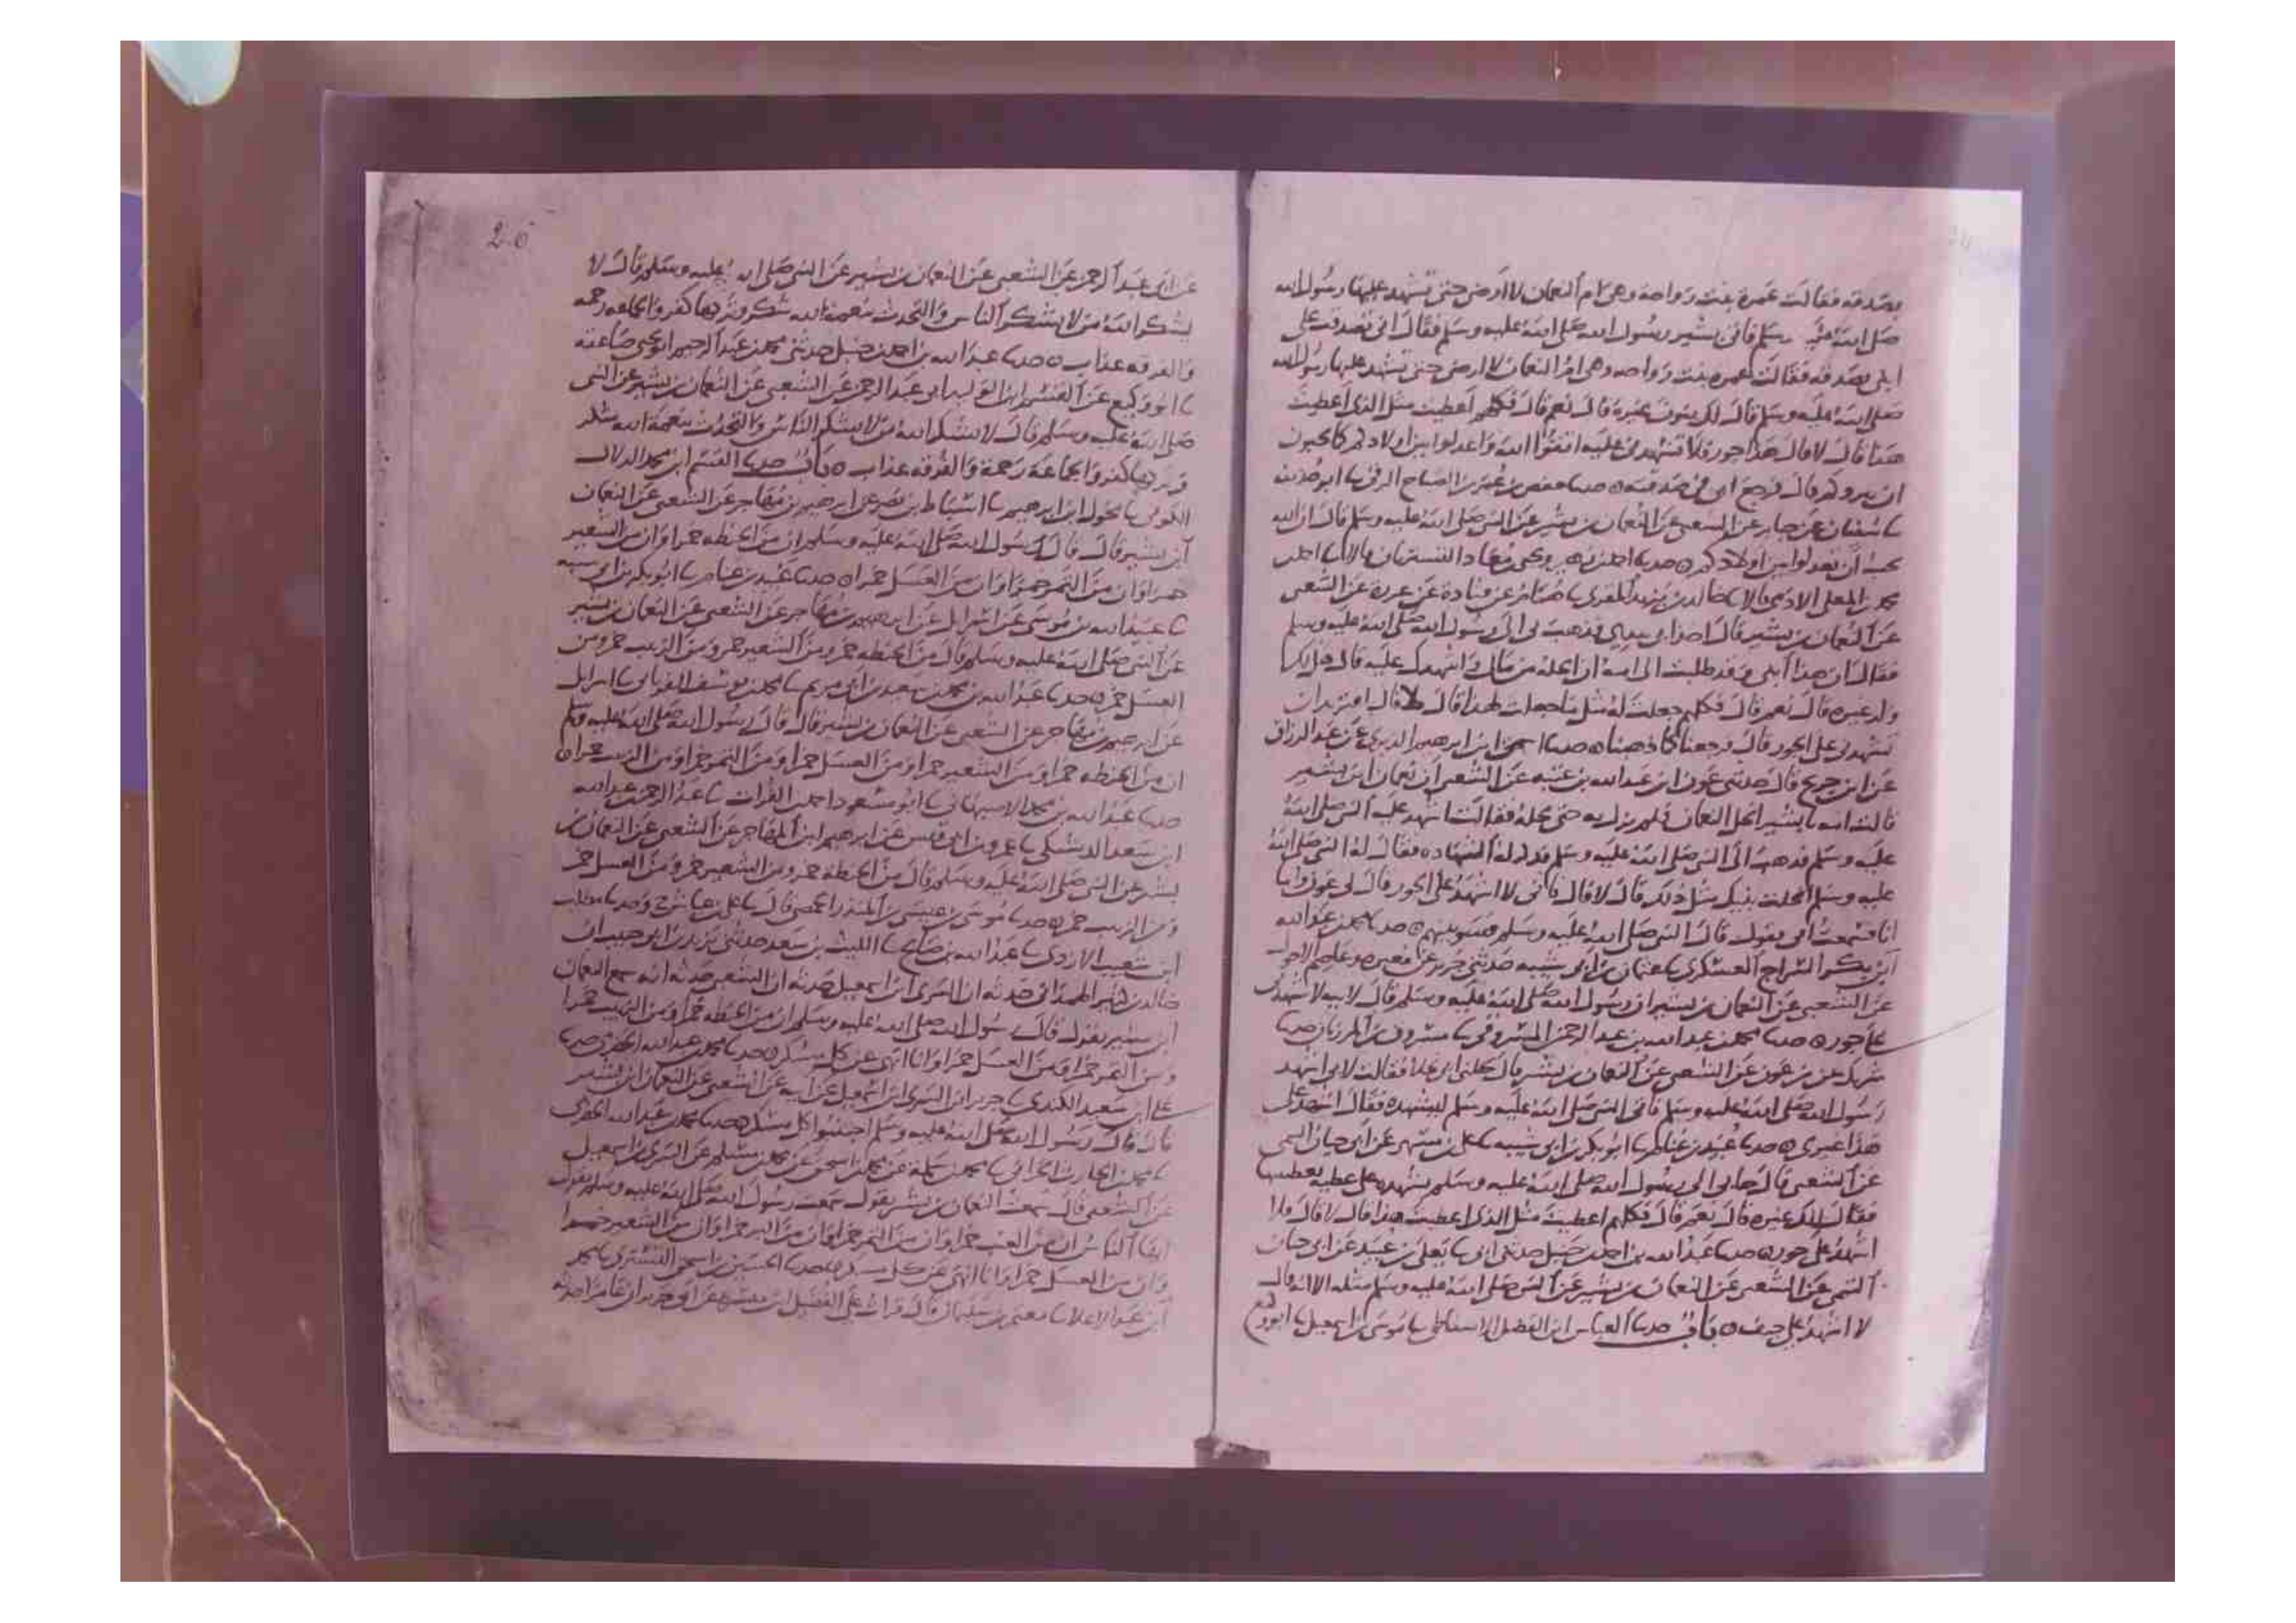 بصدقه فقالت عمرة بنت رواحة وهي ام النعمان لا ارضى حتى تشهد عليها رسول الله
صلى الله عليه وسلم فاتى بشير رسول الله صلى الله عليه وسلم فقال اني تصدقت على
ابني بصدقه فقالت عمره بنت رواحه وهي ام النعمان لا ارضى حتى تشهد عليها رسول الله
صلى الله عليه وسلم قال لك بنون غيره قال نعم قال فكلهم اعطيت مثل الذي اعطيت
هذا قال لا قال هذا جور فلا تشهدني عليه اتقوا الله واعدلوا بين اولادكم كما تحبون
ان يبروكم قال فرجع ابي في صدقته حدثنا حفص بن عمر بن الصباح الرقي نا ابو حذيفة
نا سفيان عن جابر عن الشعبي عن النعمان بن بشير عن النبي صلى الله عليه وسلم قال ان الله
يحب ان تعدلوا بين اولادكم حدثنا احمد بن زهير ويحيى بن معاذ التستريان قالا نا احمد
محمد بن المعلى الادمي قالا نا خالد بن يزيد المقري نا همام عن قتادة عن عزرة عن الشعبي
عن النعمان بن بشير قال اخذ ابي بيدي فذهب بي الى رسول الله صلى الله عليه وسلم
فقال ان هذا ابني وقد طلبت الي امه ان انحله من مالي واشهدك عليه قال هل لك
ولد غيره قال نعم قال فكلهم جعلت له مثل ما جعلت لهذا قال لا قال
تشهدني على الجور قال فرجعنا كما ذهبنا حدثنا اسحق ابن ابرهيم الدبري عن عبد الرزاق
عن ابن جريج قال حدثني عون ابن عبد الله بن عتبه عن الشعبي ان نعمان ابن بشير
قالت امه يا بشير انحل النعمان فلم تزل به حتى نحله فقالت اشهد عليه النبي صلى الله
عليه وسلم فذهب الى النبي صلى الله عليه وسلم فذكر له الشهاده فقال له النبي صلى الله
عليه وسلم انحلت بنيك مثل ذلك قال لا قال فاني لا اشهد على الجور قال لي عون واما
انا فسمعت ابي يقول قال النبي صلى الله عليه وسلم فسو بينهم حدثنا محمد بن عبد الله
ابن بكر السراج العسكري نا عثمان بن ابي شيبه حدثني جرير عن مغيره وعاصم الاحول
عن الشعبي عن النعمان بن بشير ان رسول الله صلى الله عليه وسلم قال لابيه لا تشهدني
على جور حدثنا محمد بن عبد الله بن عبد الرحمن المسروقي نا مسروق بن المرزبان حدثنا
شريك عن بن عون عن الشعبي عن النعمان بن بشير قال نحلني ابي غلاما فقالت لابي اشهد
رسول الله صلى الله عليه وسلم فاتى النبي صلى الله عليه وسلم ليشهده فقال اشهد على
هذا غيري حدثنا عبيد بن غنام نا ابو بكر بن ابي شيبه نا علي بن مسهر عن ابي حيان التيمي
عن الشعبي قال جا بي ابي الى رسول الله صلى الله عليه وسلم يشهده على عطية يعطينيها
فقال الك غيره قال نعم قال فكلهم اعطيت مثل الذي اعطيت هذا قال لا قال فلا
اشهد على جور حدثنا عبد الله بن احمد بن حنبل حدثني ابي نا يعلى بن عبيد عن ابي حيان
التيمي عن الشعبي عن النعمان بن بشير عن النبي صلى الله عليه وسلم مثله الا انه قال
لا اشهد على حيف باب حدثنا العباس ابن الفضل الاسفاطي نا موسى بن اسمعيل نا ابو وكيع
عن ابي عبد الرحمن عن الشعبي عن النعمان بن بشير عن النبي صلى الله عليه وسلم قال لا
يشكر الله من لا يشكر الناس والتحدث بنعمة الله شكر وتركها كفر والجماعه رحمه
والفرقه عذاب حدثنا عبد الله بن احمد بن حنبل حدثني محمد بن عبد الرحيم ابو يحيى صاعقه
نا ابو وكيع عن القسم ابن الوليد ابي عبد الرحمن عن الشعبي عن النعمان بن بشير عن النبي
صلى الله عليه وسلم قال لا يشكر الله من لا يشكر الناس والتحدث بنعمة الله شكر
وتركها كفر والجماعة رحمة والفرقه عذاب باب حدثنا القسم ابن محمد الدلال
الكوفي نا مخول ابن ابرهيم نا اسباط بن نصر عن ابرهيم بن مهاجر عن الشعبي عن النعمان
ابن بشير قال قال رسول الله صلى الله عليه وسلم ان من الحنطه خمرا وان من الشعير
خمرا وان من التمر خمرا وان من العسل خمرا حدثنا عبيد بن غنام نا ابو بكر بن ابي شيبه
نا عبيد الله بن موسى عن اسرائل عن ابرهيم بن مهاجر عن الشعبي عن النعمان بن بشير
عن النبي صلى الله عليه وسلم قال من الحنطه خمر ومن الشعير خمر ومن الزبيب خمر ومن
العسل خمر حدثنا عبد الله بن محمد بن سعيد بن ابي مريم نا محمد بن يوسف الفريابي نا اسرائل
عن ابرهيم بن مهاجر عن الشعبي عن النعمان بن بشير قال قال رسول الله صلى الله عليه وسلم
ان من الحنطه خمرا ومن الشعير خمرا ومن العسل خمرا ومن التمر خمرا ومن الزبيب خمرا
حدثنا عبد الله بن محمد الاصبهاني نا ابو مسعود احمد بن الفرات نا عبد الرحمن بن عبد الله
ابن سعد الدشتكي نا عمرو بن ابي قيس عن ابرهيم ابن المهاجر عن الشعبي عن النعمان بن
بشير عن النبي صلى الله عليه وسلم قال من الحنطه خمر ومن الشعير خمر ومن العسل خمر
ومن الزبيب خمر حدثنا موسى بن عيسى بن المنذر الحمصي قال نا علي بن عياش ح وحدثنا مطلب
ابن شعيب الازدي نا عبد الله بن صالح نا الليث بن سعد حدثني يزيد بن ابي حبيب ان
خالد بن كثير الهمداني حدثه ان السري ابن اسمعيل حدثه ان الشعبي حدثه انه سمع النعمان
ابن بشير يقول قال رسول الله صلى الله عليه وسلم ان من الحنطه خمرا ومن الزبيب خمرا
ومن التمر خمرا ومن العسل خمرا وانا انهى عن كل مسكر حدثنا محمد بن عبد الله الحضرمي حدثنا
علي ابن سعيد الكندي نا جرير ابن السري ابن اسمعيل عن ابيه عن الشعبي عن النعمان ابن بشير
قال قال رسول الله صلى الله عليه وسلم اجتنبوا كل مسكر حدثنا محمد بن عبد الله الحضرمي
نا محمد بن الحارث الحراني نا محمد بن سلمة عن محمد بن اسحق عن محمد بن مسلم عن السري بن اسمعيل
عن الشعبي قال سمعت النعمان بن بشير يقول سمعت رسول الله صلى الله عليه وسلم يقول
ايها الناس ان من العنب خمرا وان من التمر خمرا وان من البر خمرا وان من الشعير خمرا
وان من العسل خمرا وانا انهى عن كل مسكر حدثنا الحسين بن اسحق التستري نا محمد
ابن عبد الاعلا نا معتمر بن سليمان قال قرات على الفضيل ابن ميسرة عن ابي حريز ان عامرا حدثه